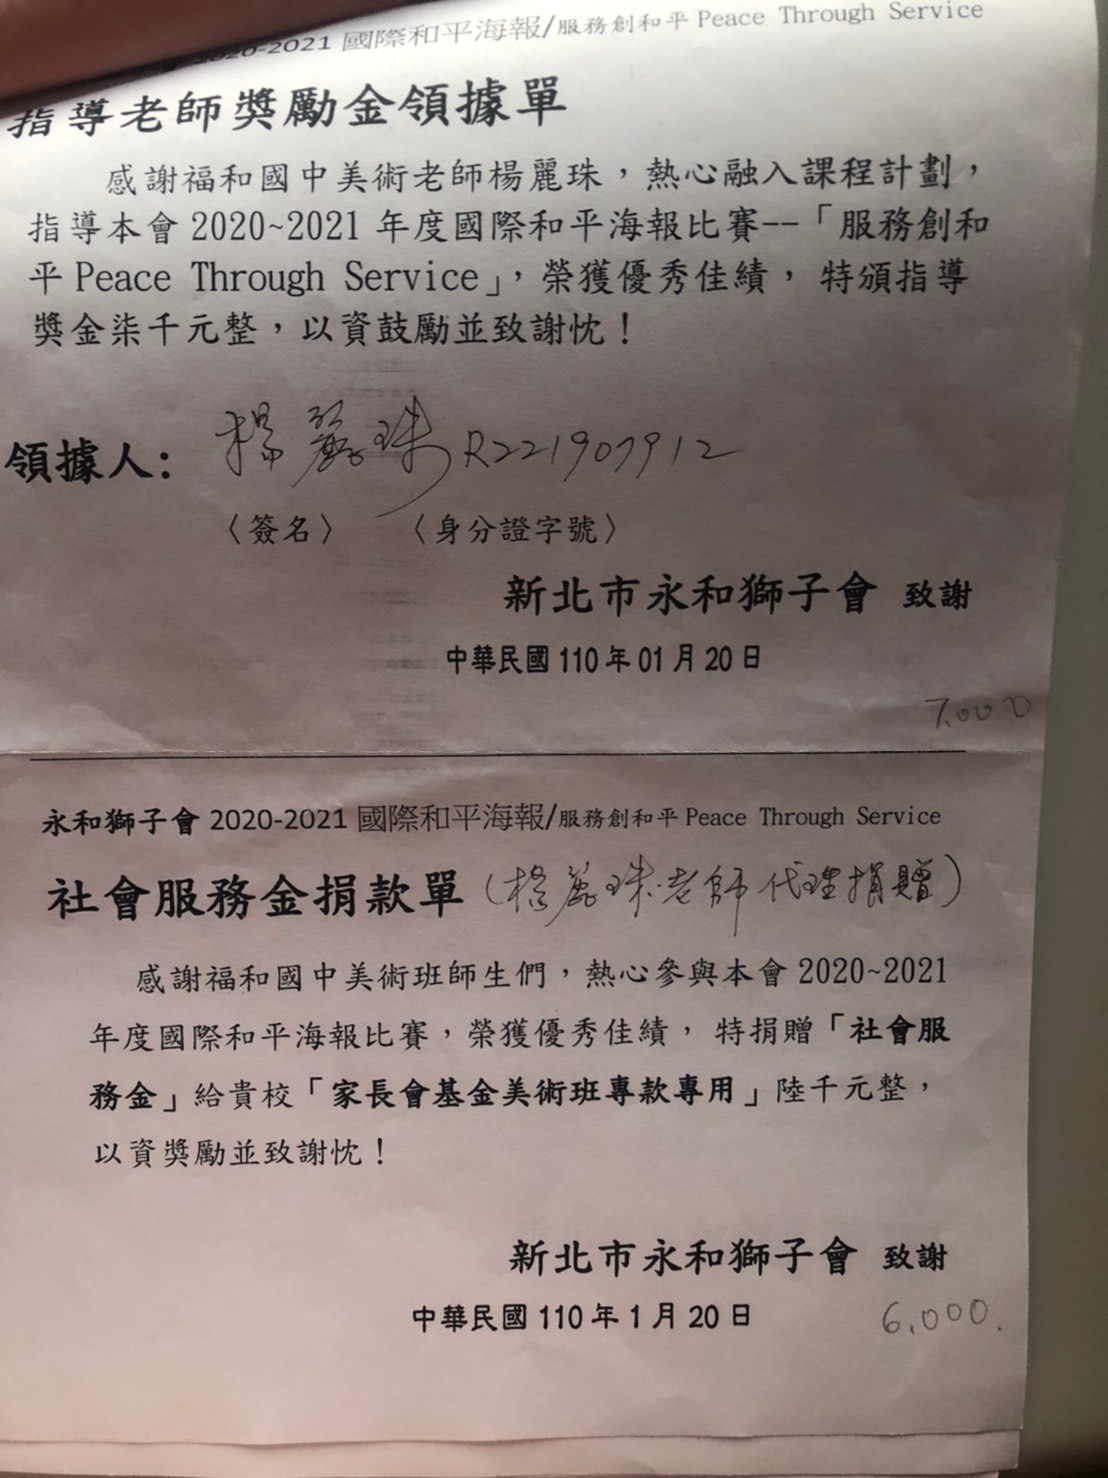 2020-2021 國際和平海報/服務創和平 Peace Through Service
指導老師獎勵金領據單
感謝福和國中美術老師楊麗珠，熱心融入課程計劃，
指導本會 2020~2021 年度國際和平海報比賽--「服務創和
平 Peace Through Service」，榮獲優秀佳績， 特頒指導
獎金柒千元整，以資鼓勵並致謝忱！
領據人： 楊麗珠 R221907912
〈簽名〉 〈身分證字號〉
新北市永和獅子會 致謝
中華民國 110 年 01 月 20 日
7,000
永和獅子會 2020-2021 國際和平海報/服務創和平 Peace Through Service
社會服務金捐款單（楊麗珠老師代理捐贈）
感謝福和國中美術班師生們，熱心參與本會 2020~2021
年度國際和平海報比賽，榮獲優秀佳績， 特捐贈「社會服
務金」給貴校「家長會基金美術班專款專用」陸千元整，
以資獎勵並致謝忱！
新北市永和獅子會 致謝
中華民國 110 年 1 月 20 日
6,000.